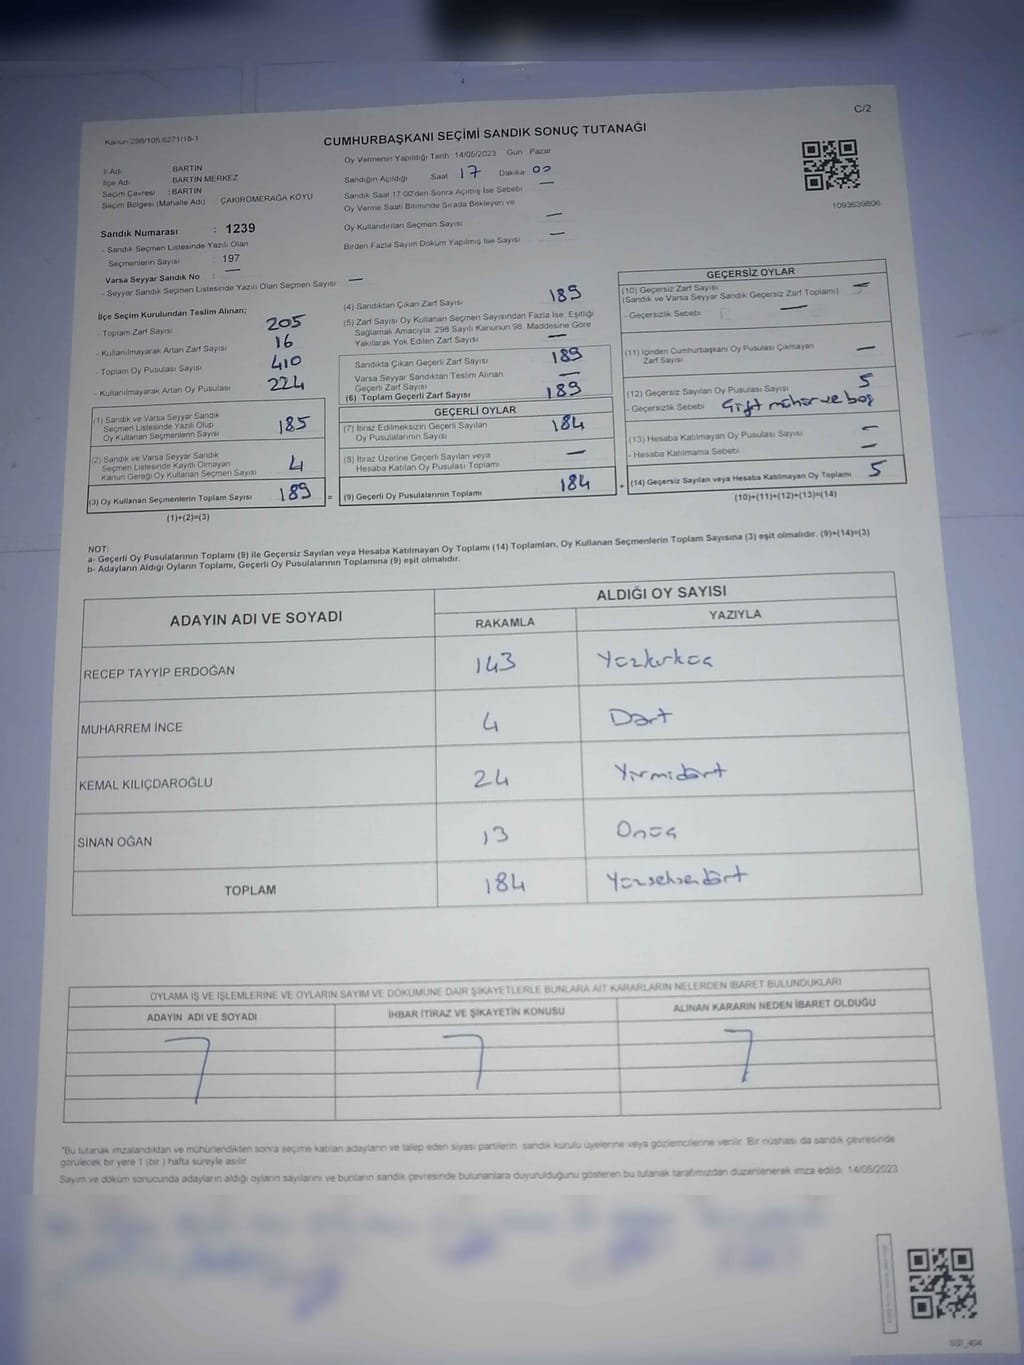 C/2
Kanun 298/105 6271/16-1
CUMHURBAŞKANI SEÇİMİ SANDIK SONUÇ TUTANAĞI
İl Adı BARTIN
İlçe Adı BARTIN MERKEZ
Seçim Çevresi : BARTIN
Seçim Bölgesi (Mahalle Adı) ÇAKIRÖMERAĞA KÖYÜ
Oy Vermenin Yapıldığı Tarih 14/05/2023 Gün Pazar
Sandığın Açıldığı Saat 17 Dakika 00
Sandık Saat 17.00'den Sonra Açılmış İse Sebebi —
Oy Verme Saati Bitiminde Sırada Bekleyen ve
Oy Kullandırılan Seçmen Sayısı —
Birden Fazla Sayım Döküm Yapılmış İse Sayısı —
1093639806
Sandık Numarası : 1239
- Sandık Seçmen Listesinde Yazılı Olan
Seçmenlerin Sayısı : 197
Varsa Seyyar Sandık No : —
- Seyyar Sandık Seçmen Listesinde Yazılı Olan Seçmen Sayısı —
İlçe Seçim Kurulundan Teslim Alınan;
- Toplam Zarf Sayısı 205
- Kullanılmayarak Artan Zarf Sayısı 16
- Toplam Oy Pusulası Sayısı 410
- Kullanılmayarak Artan Oy Pusulası 224
(1) Sandık ve Varsa Seyyar Sandık
Seçmen Listesinde Yazılı Olup
Oy Kullanan Seçmenlerin Sayısı 185
(2) Sandık ve Varsa Seyyar Sandık
Seçmen Listesinde Kayıtlı Olmayan
Kanun Gereği Oy Kullanan Seçmen Sayısı 4
(3) Oy Kullanan Seçmenlerin Toplam Sayısı 189
(1)+(2)=(3)
(4) Sandıktan Çıkan Zarf Sayısı 189
(5) Zarf Sayısı Oy Kullanan Seçmen Sayısından Fazla İse, Eşitliği
Sağlamak Amacıyla, 298 Sayılı Kanunun 98. Maddesine Göre
Yakılarak Yok Edilen Zarf Sayısı —
Sandıkta Çıkan Geçerli Zarf Sayısı 189
Varsa Seyyar Sandıktan Teslim Alınan
Geçerli Zarf Sayısı —
(6) Toplam Geçerli Zarf Sayısı 189
GEÇERLİ OYLAR
(7) İtiraz Edilmeksizin Geçerli Sayılan
Oy Pusulalarının Sayısı 184
(8) İtiraz Üzerine Geçerli Sayılan veya
Hesaba Katılan Oy Pusulası Toplamı —
= (9) Geçerli Oy Pusulalarının Toplamı 184
GEÇERSİZ OYLAR
(10) Geçersiz Zarf Sayısı —
(Sandık ve Varsa Seyyar Sandık Geçersiz Zarf Toplamı)
- Geçersizlik Sebebi —
(11) İçinden Cumhurbaşkanı Oy Pusulası Çıkmayan
Zarf Sayısı —
(12) Geçersiz Sayılan Oy Pusulası Sayısı 5
- Geçersizlik Sebebi Çift mühür ve boş
(13) Hesaba Katılmayan Oy Pusulası Sayısı —
- Hesaba Katılmama Sebebi —
+ (14) Geçersiz Sayılan veya Hesaba Katılmayan Oy Toplamı 5
(10)+(11)+(12)+(13)=(14)
NOT:
a- Geçerli Oy Pusulalarının Toplamı (9) ile Geçersiz Sayılan veya Hesaba Katılmayan Oy Toplamı (14) Toplamları, Oy Kullanan Seçmenlerin Toplam Sayısına (3) eşit olmalıdır. (9)+(14)=(3)
b- Adayların Aldığı Oyların Toplamı, Geçerli Oy Pusulalarının Toplamına (9) eşit olmalıdır.
ADAYIN ADI VE SOYADI
ALDIĞI OY SAYISI
RAKAMLA YAZIYLA
RECEP TAYYİP ERDOĞAN 143 Yüzkırküç
MUHARREM İNCE 4 Dört
KEMAL KILIÇDAROĞLU 24 Yirmidört
SİNAN OĞAN 13 Onüç
TOPLAM 184 Yüzseksendört
OYLAMA İŞ VE İŞLEMLERİNE VE OYLARIN SAYIM VE DÖKÜMÜNE DAİR ŞİKAYETLERLE BUNLARA AİT KARARLARIN NELERDEN İBARET BULUNDUKLARI
ADAYIN ADI VE SOYADI İHBAR İTİRAZ VE ŞİKAYETİN KONUSU ALINAN KARARIN NEDEN İBARET OLDUĞU
*Bu tutanak imzalandıktan ve mühürlendikten sonra seçime katılan adayların ve talep eden siyasi partilerin sandık kurulu üyelerine veya gözlemcilerine verilir. Bir nüshası da sandık çevresinde
görülecek bir yere 1 (bir) hafta süreyle asılır.
Sayım ve döküm sonucunda adayların aldığı oyların sayılarını ve bunların sandık çevresinde bulunanlara duyurulduğunu gösteren bu tutanak tarafımızdan düzenlenerek imza edildi. 14/05/2023